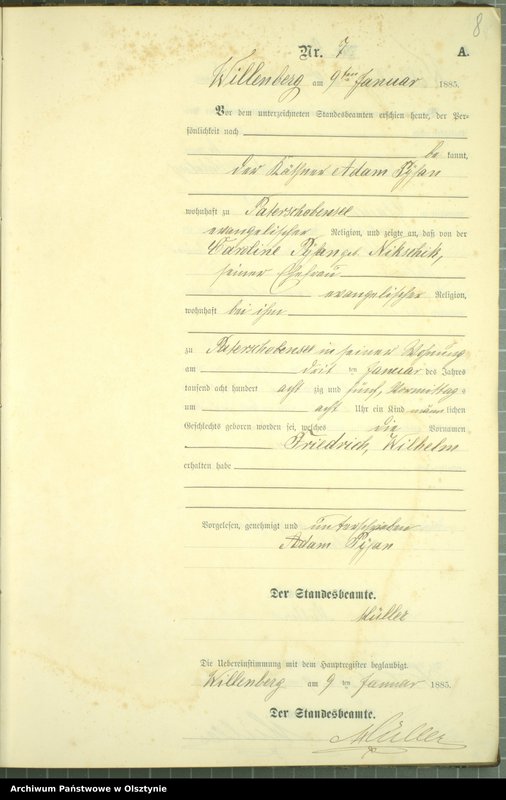 8
Nr. 7 A.
Willenberg am 9ten Januar 1885.
Vor dem unterzeichneten Standesbeamten erschien heute, der Per-
sönlichkeit nach
be kannt,
der Käthner Adam Pysan
wohnhaft zu Paterschobensee
evangelischer Religion, und zeigte an, daß von der
Caroline Pysan geb. Nikschik,
seiner Ehefrau
evangelischer Religion,
wohnhaft bei ihm
zu Paterschobensee in seiner Wohnung
am drit ten Januar des Jahres
tausend acht hundert acht zig und fünf, Vormittags
um acht Uhr ein Kind männ lichen
Geschlechts geboren worden sei, welches die Vornamen
Friedrich, Wilhelm
erhalten habe
Vorgelesen, genehmigt und unterschrieben
Adam Pysan
Der Standesbeamte.
Müller
Die Uebereinstimmung mit dem Hauptregister beglaubigt.
Willenberg am 9 ten Januar 1885.
Der Standesbeamte.
Müller
Archiwum Państwowe w Olsztynie